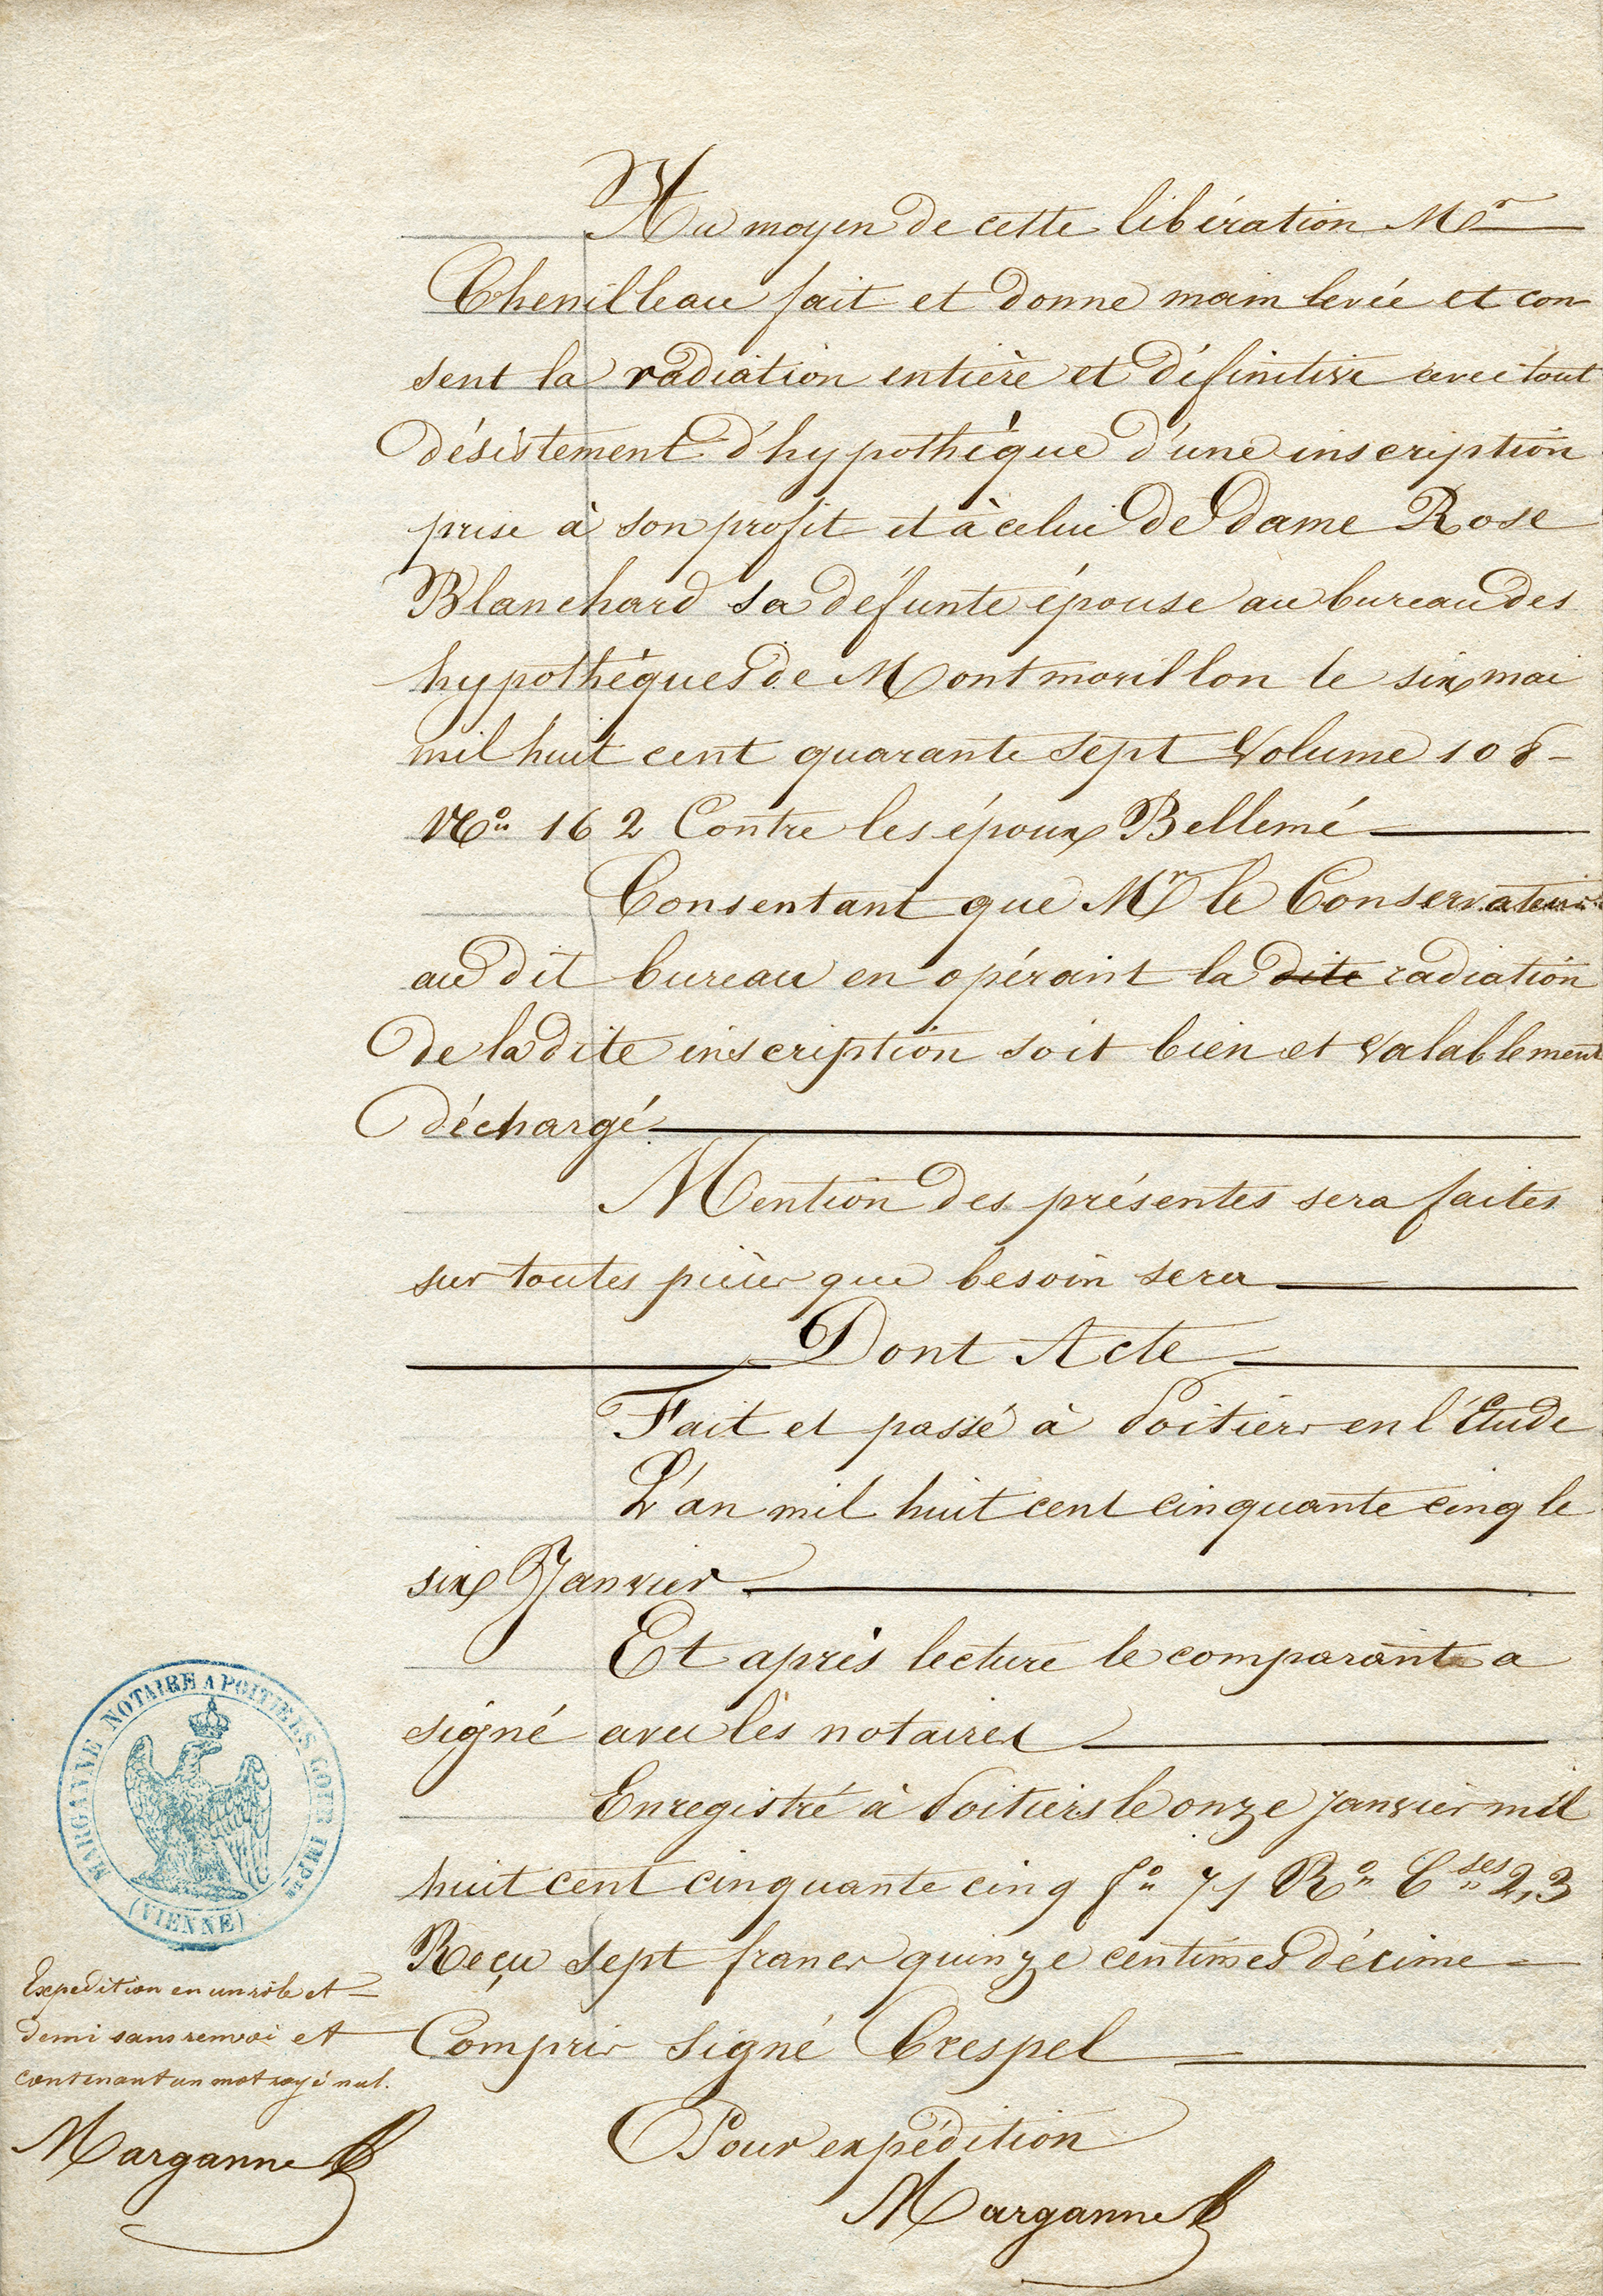 Au moyen de cette libération Mr
Chenilleau fait et donne main levée et con
sent la radiation entière et définitive avec tout
désistement d'hypothèque d'une inscription
prise à son profit et à celui de dame Rose
Blanchard sa défunte épouse au bureau des
hypothèques de Montmorillon le six mai
mil huit cent quarante sept Volume 108 -
No 162 Contre les époux Bellemé
Consentant que Mr le Conservateur
au dit bureau en opérant la dite radiation
de la dite inscription soit bien et valablement
déchargé
Mention des présentes sera faites
sur toutes pièces que besoin sera
Dont Acte
Fait et passé à Poitiers en l'Etude
L'an mil huit cent cinquante cinq le
six Janvier
Et après lecture le comparant a
signé avec les notaires
Enregistré à Poitiers le onze janvier mil
huit cent cinquante cinq fo 71 Ro Cses 2,3
Reçu sept francs quinze centimes décime
Compris Signé Crespel
Pour expédition
Marganne
MARGANNE NOTAIRE A POITIERS COUR IMPle
(VIENNE)
Expedition en un rôle et
demi sans renvoi et
contenant un mot rayé nul.
Marganne